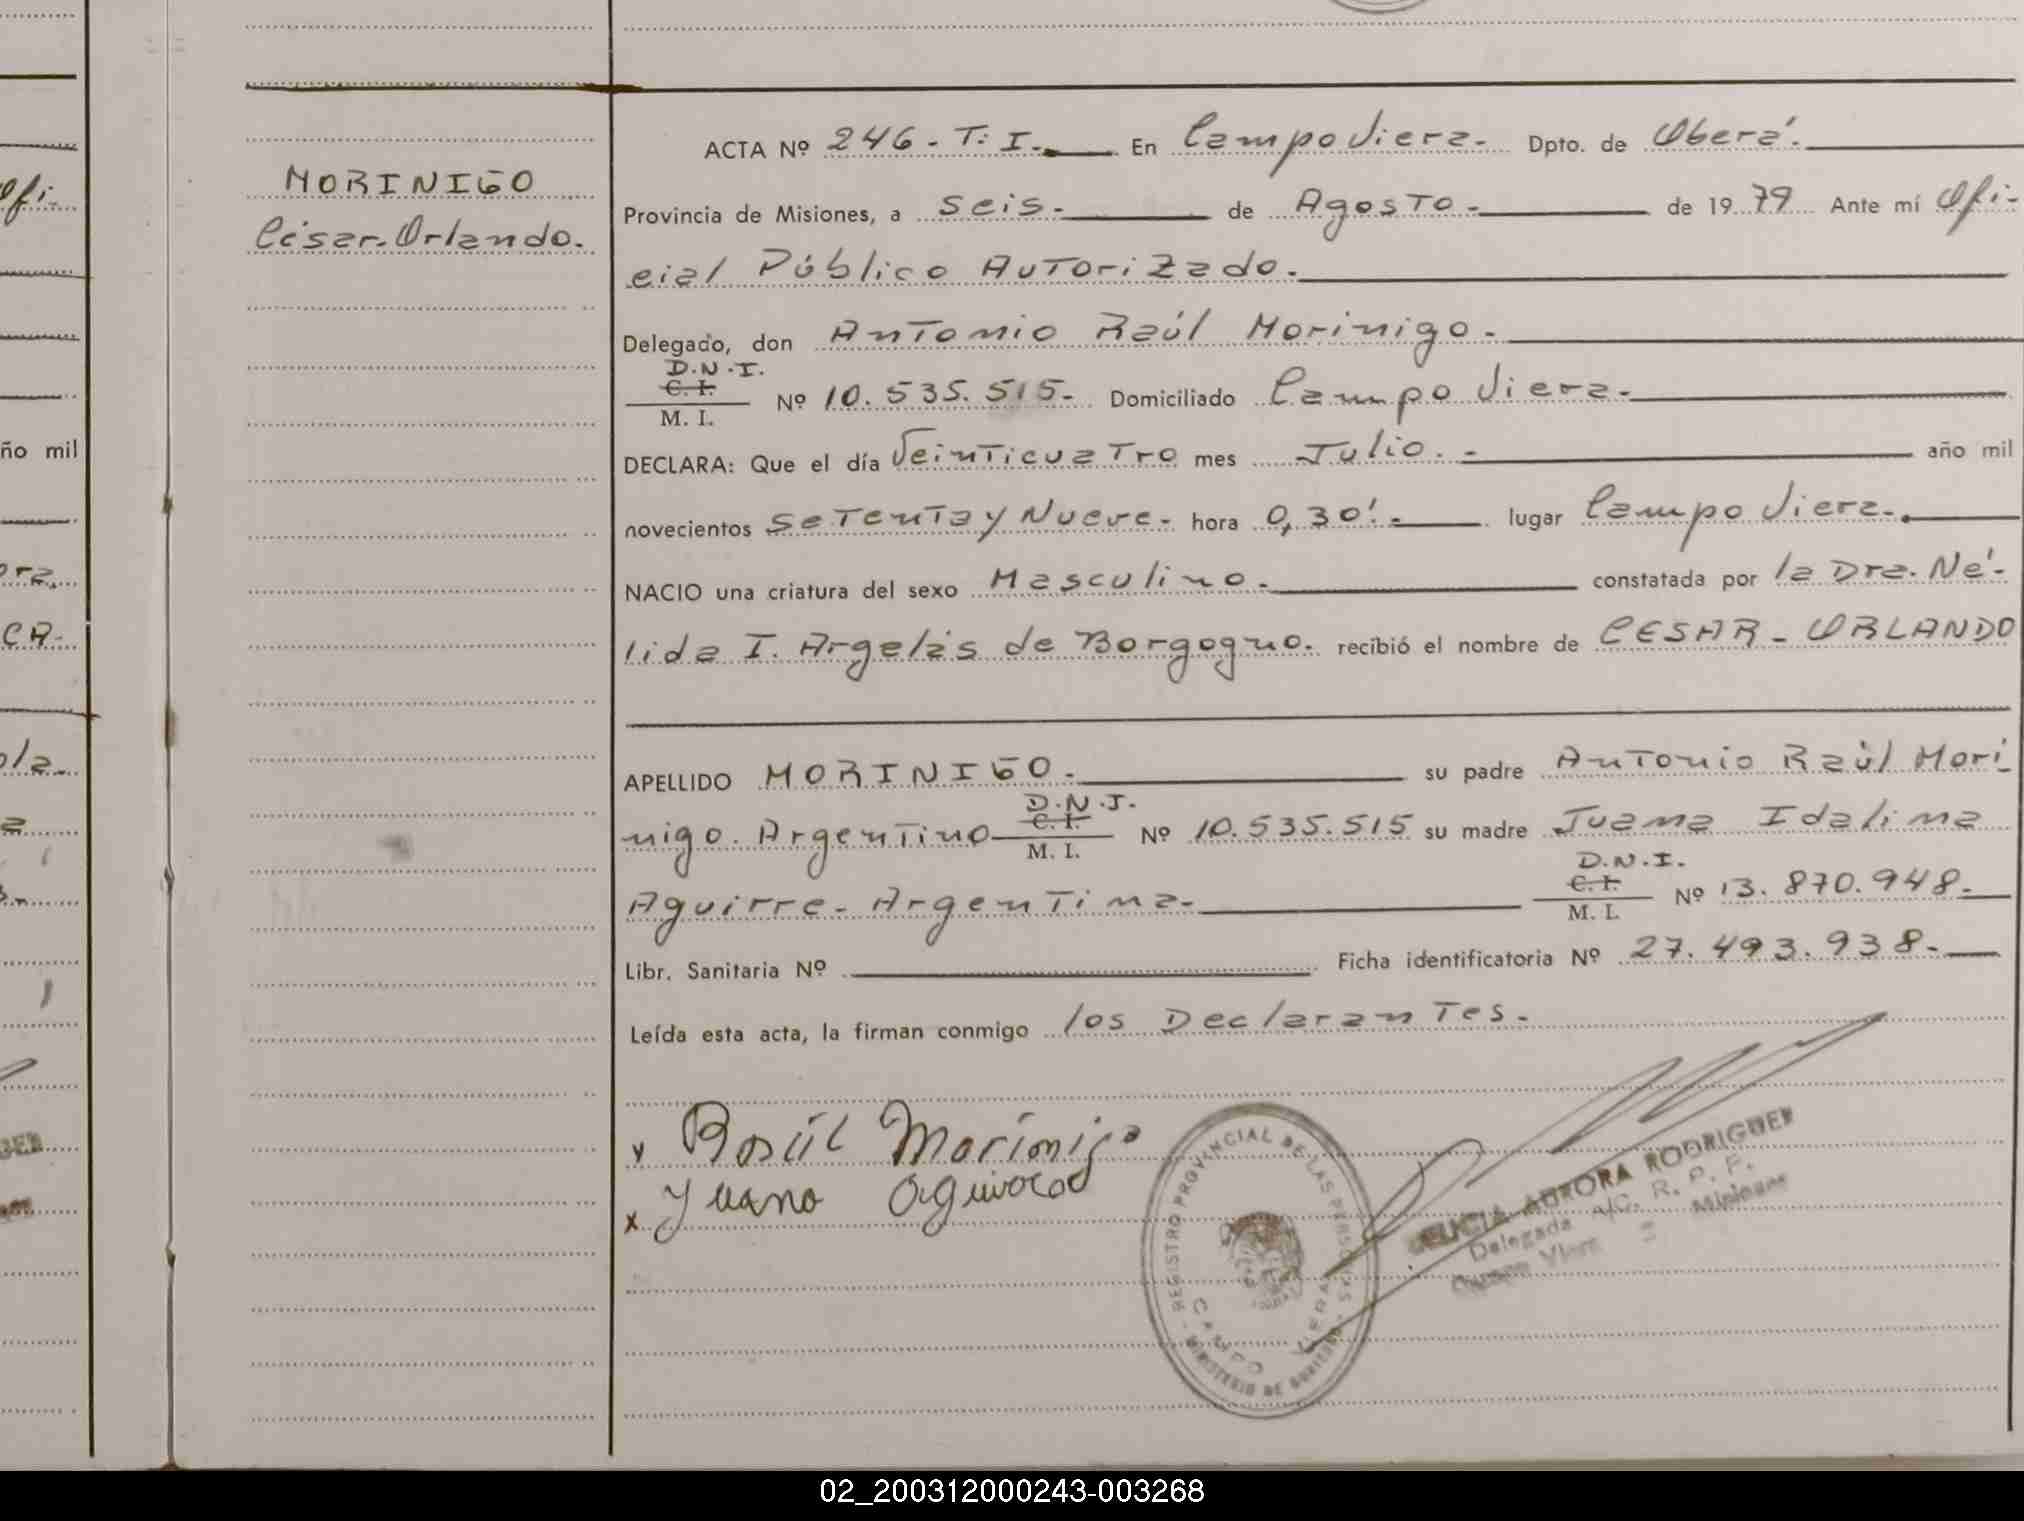 MORINIGO
César-Orlando.
ACTA Nº 246.- T: I.- En Campo Viera.- Dpto. de Oberá.-
Provincia de Misiones, a seis.- de Agosto.- de 1979 Ante mí Ofi-
cial Público Autorizado.-
Delegado, don Antonio Raúl Morinigo.-
D.N.I.
C. I.
M. I.
Nº 10.535.515.- Domiciliado Campo Viera.-
DECLARA: Que el día Veinticuatro mes Julio.- año mil
novecientos Setenta y Nueve.- hora 0,30'.- lugar Campo Viera.-
NACIO una criatura del sexo Masculino.- constatada por la Dra. Né-
lida I. Argelás de Borgogno. recibió el nombre de CESAR-ORLANDO
APELLIDO MORINIGO.- su padre Antonio Raúl Mori-
nigo. Argentino
D.N.I.
C. I.
M. I.
Nº 10.535.515 su madre Juana Idalina
Aguirre.- Argentina.-
D.N.I.
C. I.
M. I.
Nº 13.870.948.-
Libr. Sanitaria Nº Ficha identificatoria Nº 27.493.938.-
Leída esta acta, la firman conmigo los Declarantes.-
Raúl Morinigo
x Juana
REGISTRO PROVINCIAL DE LAS PERSONAS
MINISTERIO DE GOBIERNO
CAMPO VIERA
AURORA RODRIGUEZ
Delegada A/C. R. P. P.
Campo Viera Misiones
ofi-
ño mil
ora,
CA-
ola-
02_200312000243-003268